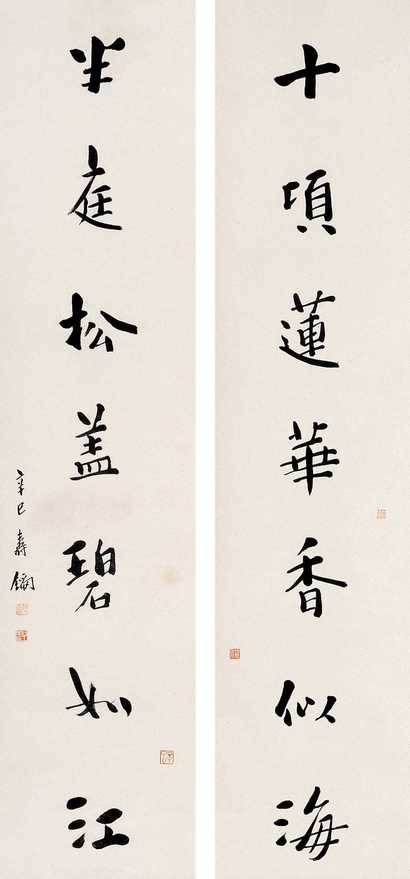 十頃蓮華香似海
半庭松盖碧如江
辛巳壽鏞